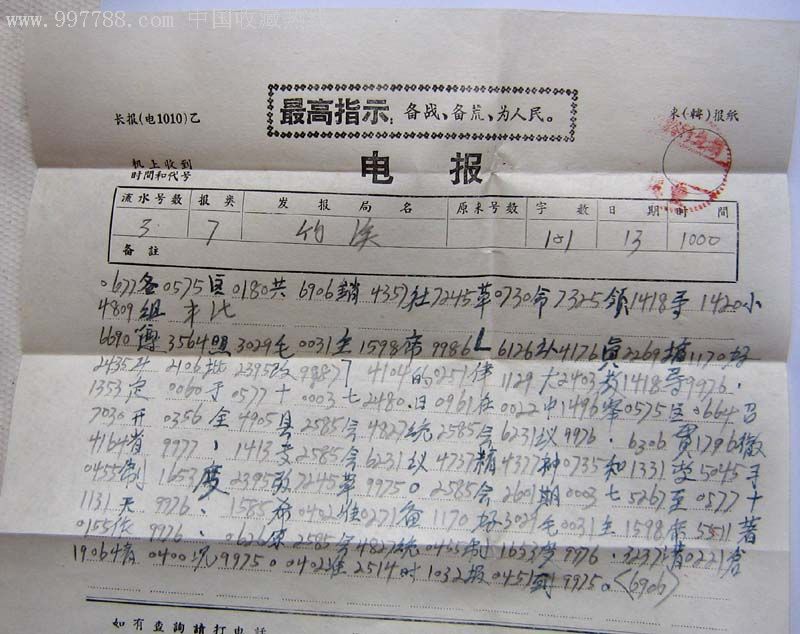 www.997788.com 中国收藏热线
最高指示: 备战、备荒、为人民。
长报(电1010)乙
来(转)报纸
机上收到
时间和代号
电报
流水号数 报类 发报局名 原来号数 字数 日期 时间
3 7 竹溪 101 13 1000
备註
0677各0575区0180共6906销4357社7245革0730命7325领1418导1420小
4809组
6690 3564照3029毛0031主1598席9986 6126 4176真2269 1170好
2435 2106批2395改9987 4104的0251伟1129大2403教1418导9976,
1353定0060于0577十0003七2480日0961在0022中1496峯0575区0664召
7030开0356全4905县2585会4827统2585会6231议9976, 6306贯1796彻
4164省9977、1413专2585会6231议4737精4377神0735和1331 5045
0455制1653度2395改7245革9975。2585会2601期0003七5267至0577十
1131天9976, 1585希0402准0271备1170好3029毛0031主1598席5511著
0155 9976, 0626 2585会4827统0455制1653度9976, 3237 0221
1906 0400况9975。0402准2514时1032报0451到9975。(6906)
如有查詢請打电話